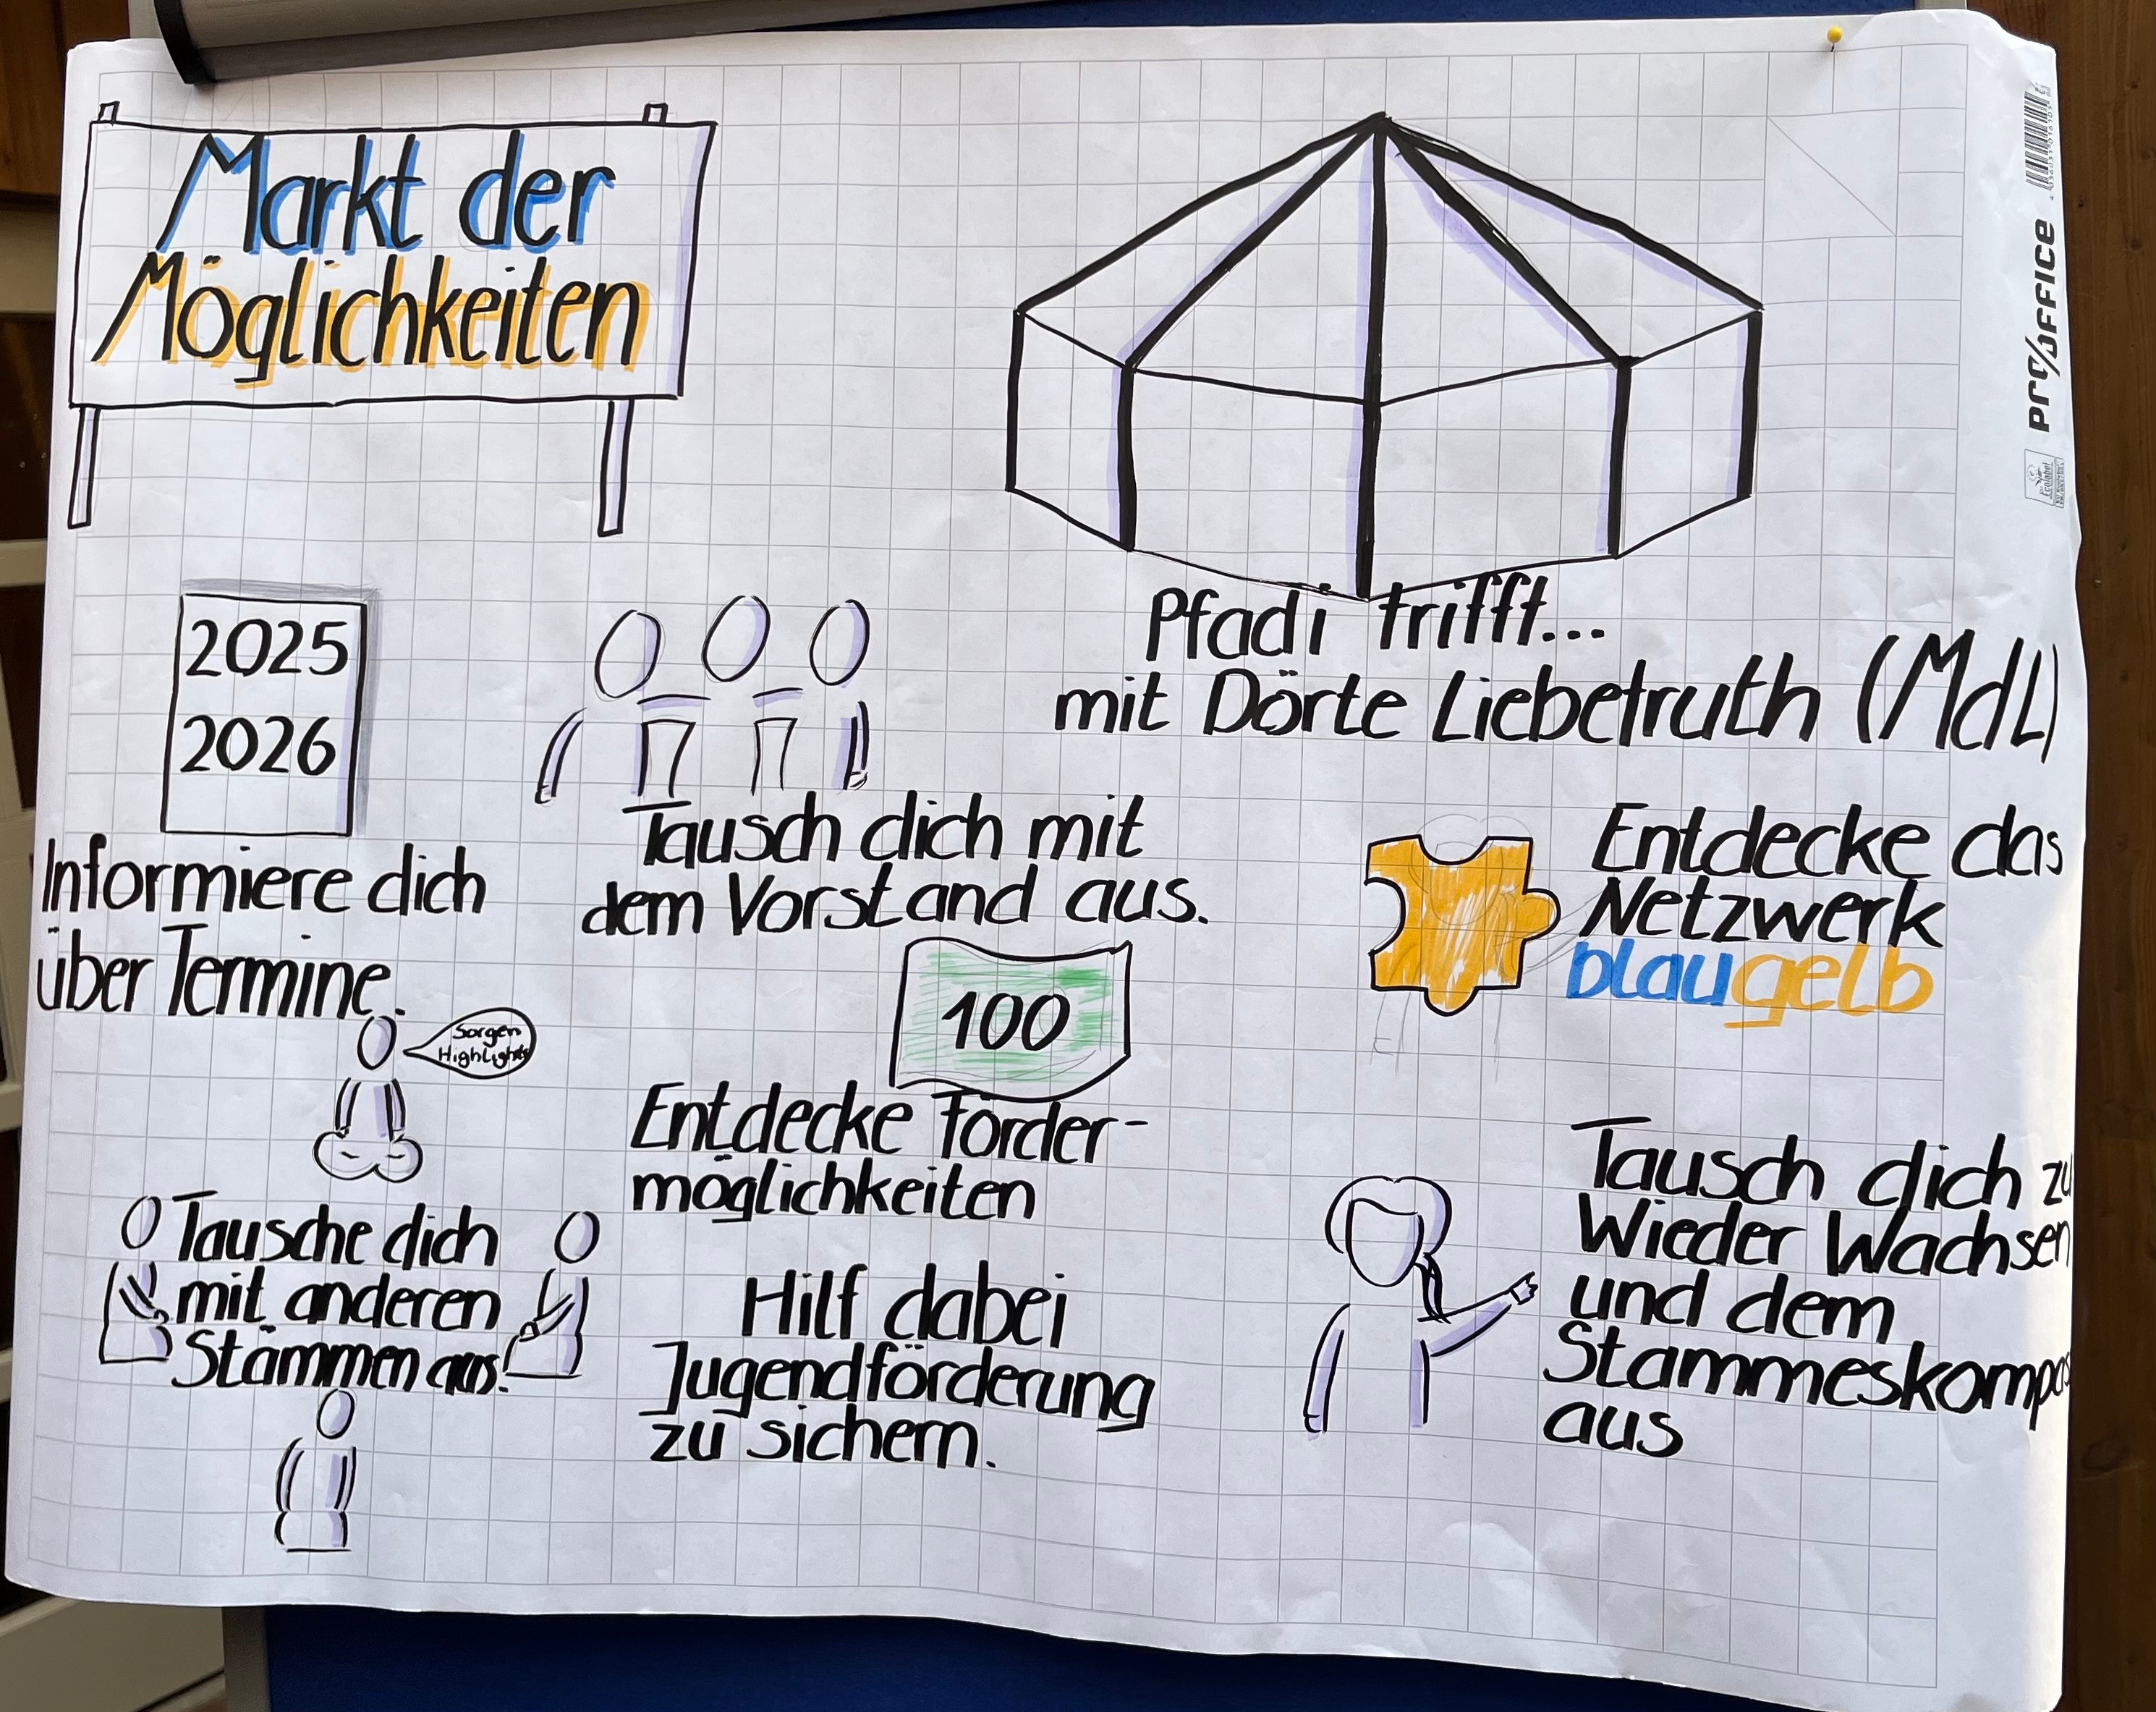 Markt der
Möglichkeiten
Pfadi trifft...
mit Dörte Liebetruth (MdL)
2025
2026
Informiere dich
über Termine.
Tausch dich mit
dem Vorstand aus.
Entdecke das
Netzwerk
blaugelb
Sorgen
Highlights
100
Entdecke Förder-
möglichkeiten
Tausche dich
mit anderen
Stämmen aus!
Hilf dabei
Jugendförderung
zu sichern.
Tausch dich zu
Wieder Wachsen
und dem
Stammeskompass
aus
PRO/OFFICE
Ecolabel